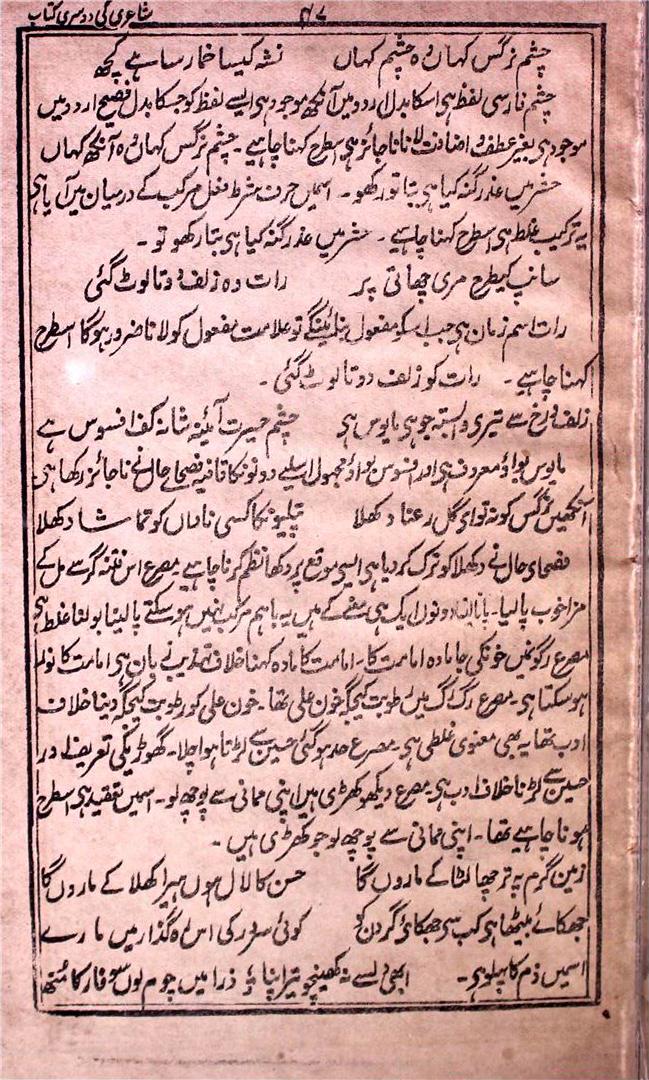 ۴۷ شاعری کی دوسری کتاب
چشم نرگس کہاں وہ چشم کہاں نشہ کیسا خمار سا ہے کچھ
چشم فارسی لفظ ہی اسکا بدل اردو میں آنکھ موجود ہی ایسے لفظ کو جسکا بدل فصیح اردو میں
موجود ہی بغیر عطف و اضافت لانا ناجائز ہی اسطرح کہنا چاہیے ۔ چشم نرگس کہاں وہ آنکھ کہاں
حشر میں عذر گنہ کیا ہی بتا تو رکھو ۔ اسمیں حرف شرط فعل مرکب کے درمیان میں آیا ہی
یہ ترکیب غلط ہی اسطرح کہنا چاہیے ۔ حشر میں عذر گنہ کیا ہی بتا رکھو تو ۔
سانپ کیطرح مری چھاتی پر رات وہ زلف دوتا لوٹ گئی
رات اسم زمان ہی جب اسکو مفعول بنائینگے تو علامت مفعول کو لانا ضرور ہوگا اسطرح
کہنا چاہیے ۔ رات کو زلف دوتا لوٹ گئی ۔
زلف و رخ سے تیری وابستہ جو ہی مایوس ہی چشم حیرت آئینہ شانہ کف افسوس ہے
مایوس بواؤ معروف ہی اور افسوس بواؤ مجہول اسلیے دونونکا قافیہ فصحاے حال نے ناجائز رکھا ہی
آنکھیں نرگس کو نہ تو ای گل رعنا دکھلا پتلیونکا کسی ناداں کو تماشا دکھلا
فصحای حال نے دکھلا کو ترک کردیا ہی ایسی موقع پر دکھا نظم کرنا چاہیے مصرع اس فتنہ گر سے مل کے
مزا خوب پالیا ۔ پانا لینا دونوں ایک ہی معنے کے ہیں یہ باہم مرکب نہیں ہو سکتے پالینا بولنا غلط ہی
مصرع رگونمیں خونکی جا مادہ امامت کا ۔ امامت کا مادہ کہنا خلاف تہذیب زبان ہی امامت کا نور
ہو سکتا ہی ۔ مصرع رگ رگ میں رطوبت کیجگہ خون علی تھا ۔ خون علی کو رطوبت کیجگہ دینا خلاف
ادب تھا یہ بھی معنوی غلطی ہی ۔ مصرع حد ہو گئی حسین سے لڑتا ہوا چلا ۔ گھوڑیکی تعریف اور
حسین سے لڑنا خلاف ادب ہی ۔ مصرع دیکھو کھڑی ہیں اپنی ممانی سے پوچھ لو ۔ اسمیں تعقید ہی اسطرح
ہونا چاہیے تھا ۔ اپنی ممانی سے پوچھ لو جو کھڑی ہیں ۔
زمین گرم پہ ترچھا لٹا کے ماروں گا حسن کا لال ہوں ہیرا کھلا کے ماروں گا
جھکائے بیٹھا ہی کب سے جھکائی گردن کو کوئی سرور کی اس رہ گذار میں مارے
اسمیں ذم کا پہلو ہی ۔ ابھی دلسے نہ کھینچو تیر اپنا ذرا میں چوم لوں سوفار کا منھ